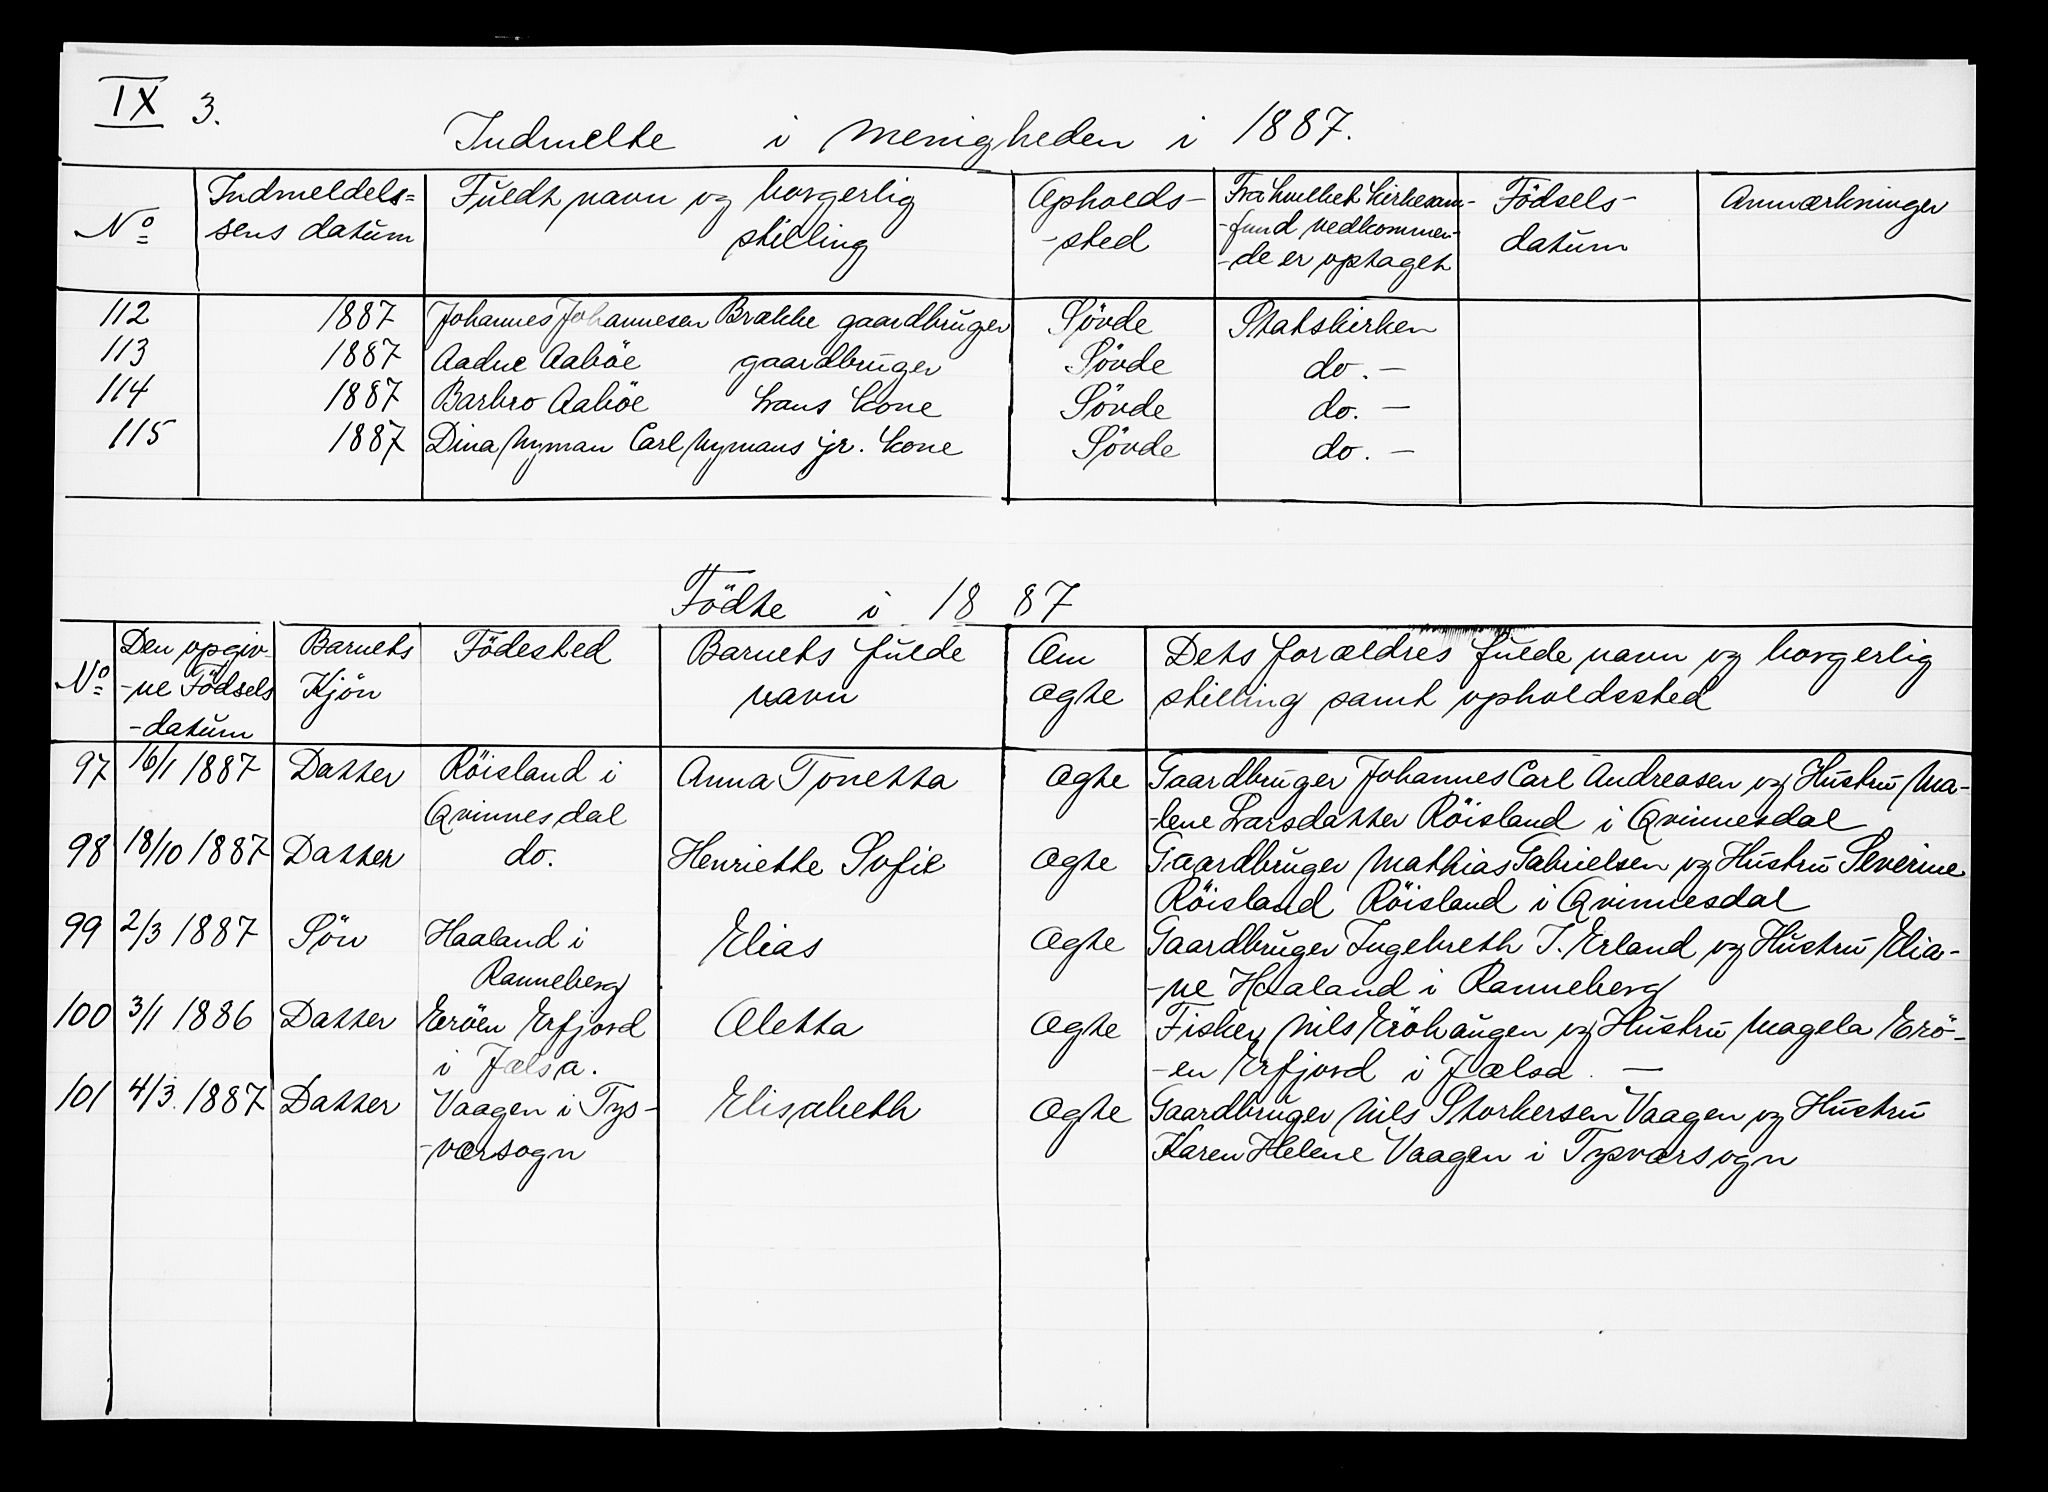 IX 3.
Indmelte i menigheden i 1887.
No Indmeldels= Fuldt navn og borgerlig Opholds- Fra hvilket kirkesam- Födsels- Anmærkninger
sens datum stilling -sted -fund vedkommen- datum
-de er optaget
112 1887 Johannes Johannesen Brakke gaardbruger Sövde Statskirken
113 1887 Aadne Aaböe gaardbruger Sövde do. -
114 1887 Barbro Aaböe hans kone Sövde do. -
115 1887 Dina Nyman Carl Nymans jr. kone Sövde do. -
Födte i 1887
No Den opgiv- Barnets Födested Barnets fulde Om Dets forældres fulde navn og borgerlig
-ne Födsels Kjön navn ægte stilling samt opholdssted
-datum
97 16/1 1887 Datter Röisland i Anna Tonetta ægte Gaardbruger Johannes Carl Andreasen og Hustru Ma-
Qvinnesdal -lene Larsdatter Röisland i Qvinnesdal
98 18/10 1887 Datter do. Henriette Sofie ægte Gaardbruger Mathias Gabrielsen og Hustru Severine
Röisland Röisland i Qvinnesdal
99 2/3 1887 Sön Haaland i Elias ægte Gaardbruger Ingebreth T. Erland og Hustru Elia-
Ranneberg -ne Haaland i Ranneberg
100 3/1 1886 Datter Eröen Erfjord Oletta ægte Fisker Nils Eröhaugen og Hustru Magela Erö-
i Jælsa. -en Erfjord i Jælsa. -
101 4/3. 1887 Datter Vaagen i Tys- Elisabeth ægte Gaardbruger Nils Storkersen Vaagen og Hustru
-værsogn Karen Helene Vaagen i Tysværsogn